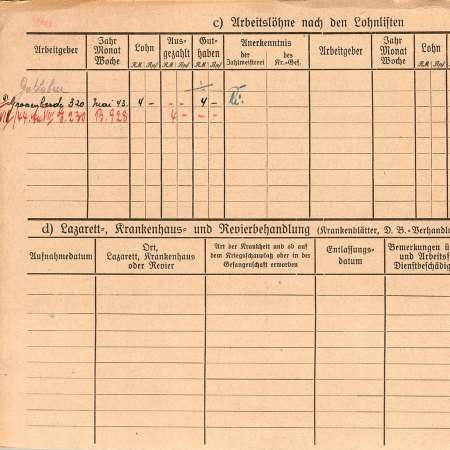 c) Arbeitslöhne nach den Lohnlisten
Arbeitgeber
Jahr
Monat
Woche
Lohn
R.M. Rpf
Aus-
gezahlt
R.M. Rpf
Gut-
haben
R.M. Rpf
Anerkenntnis
der
Zahlmeisterei
des
Kr.-Gef.
Arbeitgeber
Jahr
Monat
Woche
Lohn
R.M. Rpf
320 Mai 43. 4 - - - 4 -
VIII B. 928 4 - - -
d) Lazarett-, Krankenhaus- und Revierbehandlung (Krankenblätter, D. B.-Verhandlu
Aufnahmedatum
Ort,
Lazarett, Krankenhaus
oder Revier
Art der Krankheit und ob auf
dem Kriegsschauplatz oder in der
Gefangenschaft erworben
Entlassungs-
datum
Bemerkungen ü
und Arbeitsf
Dienstbeschädig